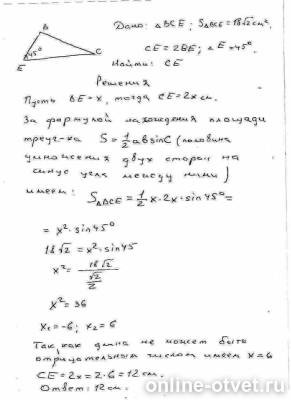 B
45°
E
C
Дано: △BCE; S△BCE = 18√2 см².
CE = 2BE; ∠E = 45°.
Найти: CE
Решения
Пусть BE = x, тогда CE = 2x см.
За формулой нахождения площади
треуг-ка S = 1/2 ab sin C (половина
умножения двух сторон на
синус угла между ними)
имеем: S△BCE = 1/2 x · 2x · sin 45° =
= x² · sin 45°
18√2 = x² · sin 45
x² = 18√2 / (√2/2)
x² = 36
x₁ = -6; x₂ = 6
Так как длина не может быть
отрицательным числом имеем x = 6
CE = 2x = 2 · 6 = 12 см.
Ответ: 12 см.
online-otvet.ru